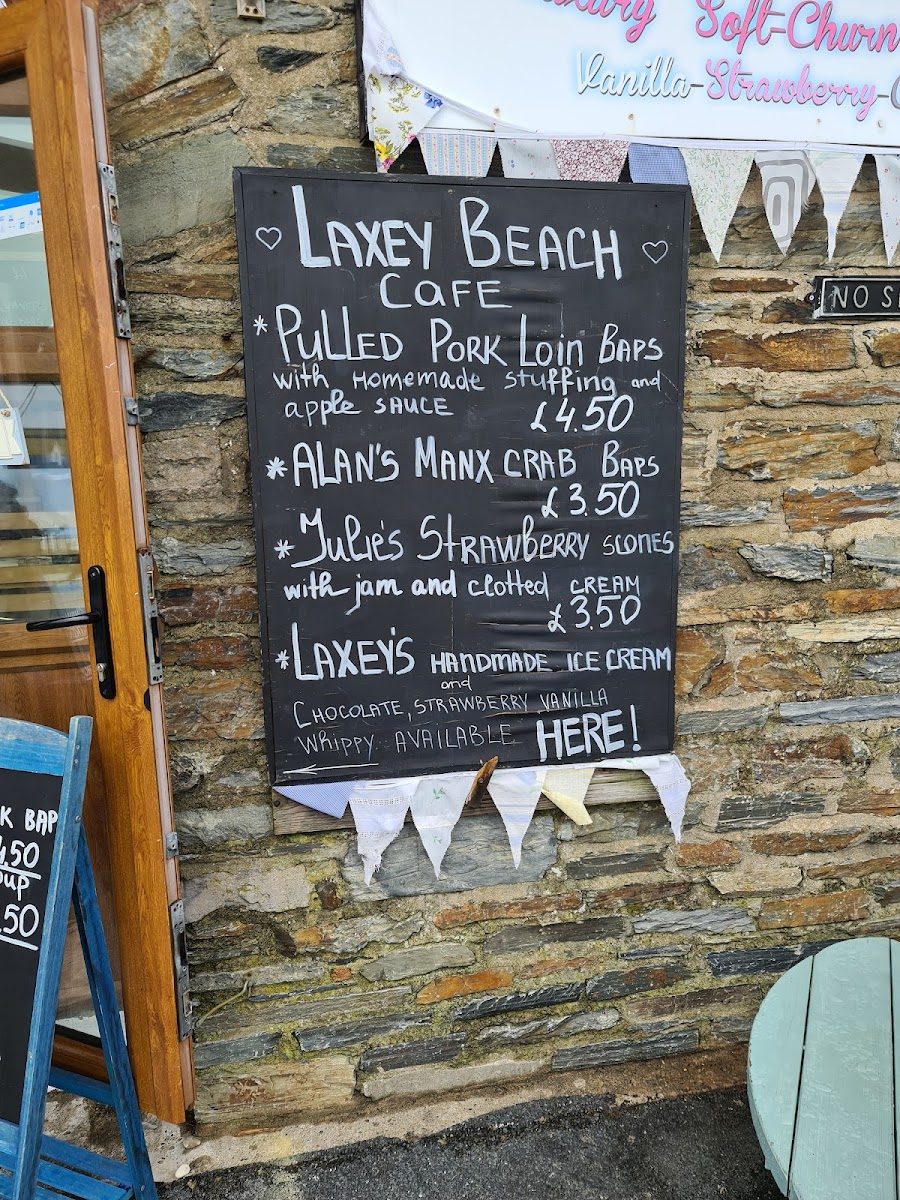 Soft-Churn
Vanilla-Strawberry-
NO S
LAXEY BEACH
CAFE
* PULLED PORK LOIN BAPS
with Homemade stuffing and
apple SAUCE £4.50
* ALAN'S MANX CRAB BAPS
£3.50
* Julie's STRAWBERRY SCONES
with jam and clotted CREAM
£3.50
* LAXEY'S HANDMADE ICE CREAM
and
CHOCOLATE, STRAWBERRY VANILLA
Whippy AVAILABLE HERE!
K BAP
4.50
oup
.50